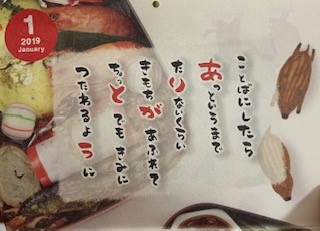 1
2019
January
ことばにしたら
あっというまで
たりないくらい
きもちがあふれて
ちょっとでもきみに
つたわるように